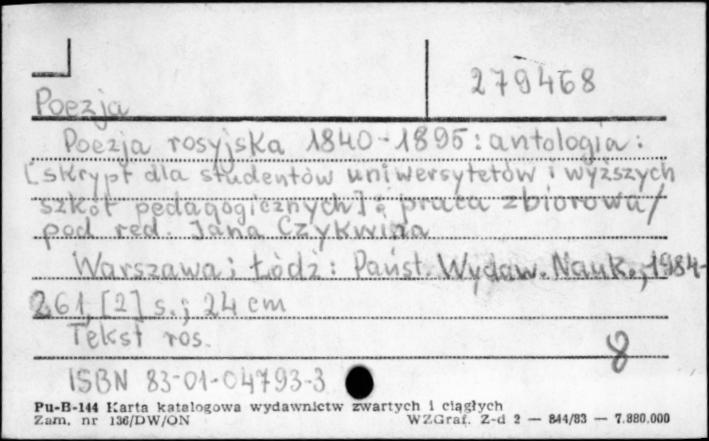 279468
Poezja
Poezja rosyjska 1840-1895 : antologia :
[skrypt dla studentów uniwersytetów i wyższych
szkół pedagogicznych] : praca zbiorowa /
pod red. Jana Czykwina
Warszawa ; Łódź : Państ. Wydaw. Nauk., 1984-
261, [2] s. ; 24 cm
Tekst ros.
8
ISBN 83-01-04793-3
Pu-B-144 Karta katalogowa wydawnictw zwartych i ciągłych
Zam. nr 136/DW/ON WZGraf. Z-d 2 — 844/83 — 7.880.000